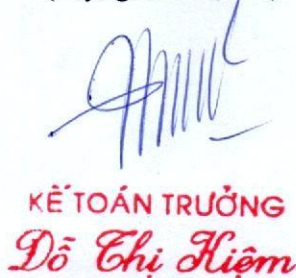 KẾ TOÁN TRƯỞNG
Đỗ Thị Kiệm